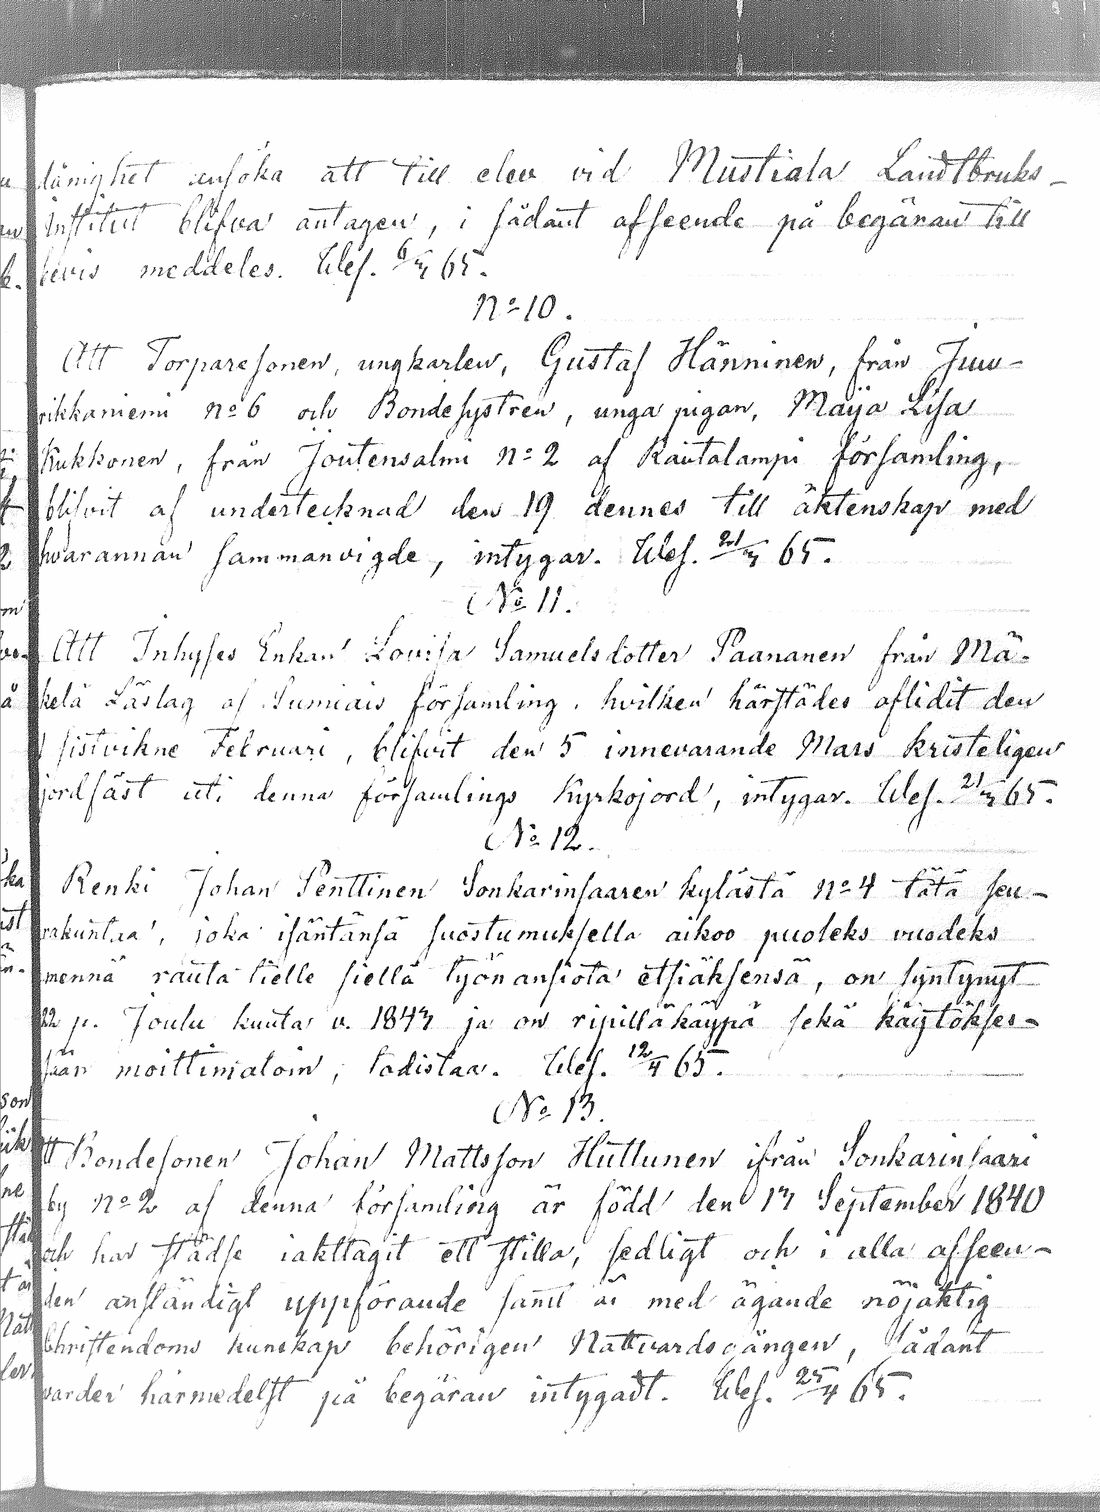 dånighet ansöka att till elev vid Mustiala Landtbruks-
Institut blifva antagen, i sådant afseende på begäran till
bevis meddeles. Wesl. 6/3 65.
No 10.
Att Torparesonen, ungkarlen, Gustaf Hänninen, från Juu-
rikkaniemi No 6 och Bondesystren, unga pigan, Maija Lisa
Kukkonen, från Joutensalmi No 2 af Rautalampi församling,
blifvit af undertecknad den 19 dennes till äktenskap med
hvarannan sammanvigde, intygar. Wesl. 21/3 65.
No 11.
Att Inhyses Enkan Lovisa Samuelsdotter Paananen från Mä-
kelä Läslag af Sumiais församling, hvilken härstädes aflidit den
sistvikne Februari, blifvit den 5 innevarande Mars kristeligen
jordfäst uti denna församlings Kyrkojord, intygar. Wesl. 21/3 65.
No 12.
Renki Johan Penttinen Sonkarinsaaren kylästä No 4 tätä seu-
rakuntaa, joka isäntänsä suostumuksella aikoo puoleks vuodeks
mennä rauta tielle siellä työn ansiota etsiäksensä, on syntynyt
22 p. Joulu kuuta v. 1843 ja on ripilläkäypä sekä käytökses-
sään moittimatoin, todistaa. Wesl. 12/4 65.
No 13.
Att Bondesonen Johan Mattsson Huttunen ifrån Sonkarinsaari
by No 2 af denna församling är född den 13 September 1840
och har städse iakttagit ett stilla, sedligt och i alla afseen-
den anständigt uppförande samt är med ägande nöjaktig
Christendoms kunskap behörigen Nattvardsgången, sådant
varder härmedelst på begäran intygadt. Wesl. 25/4 65.